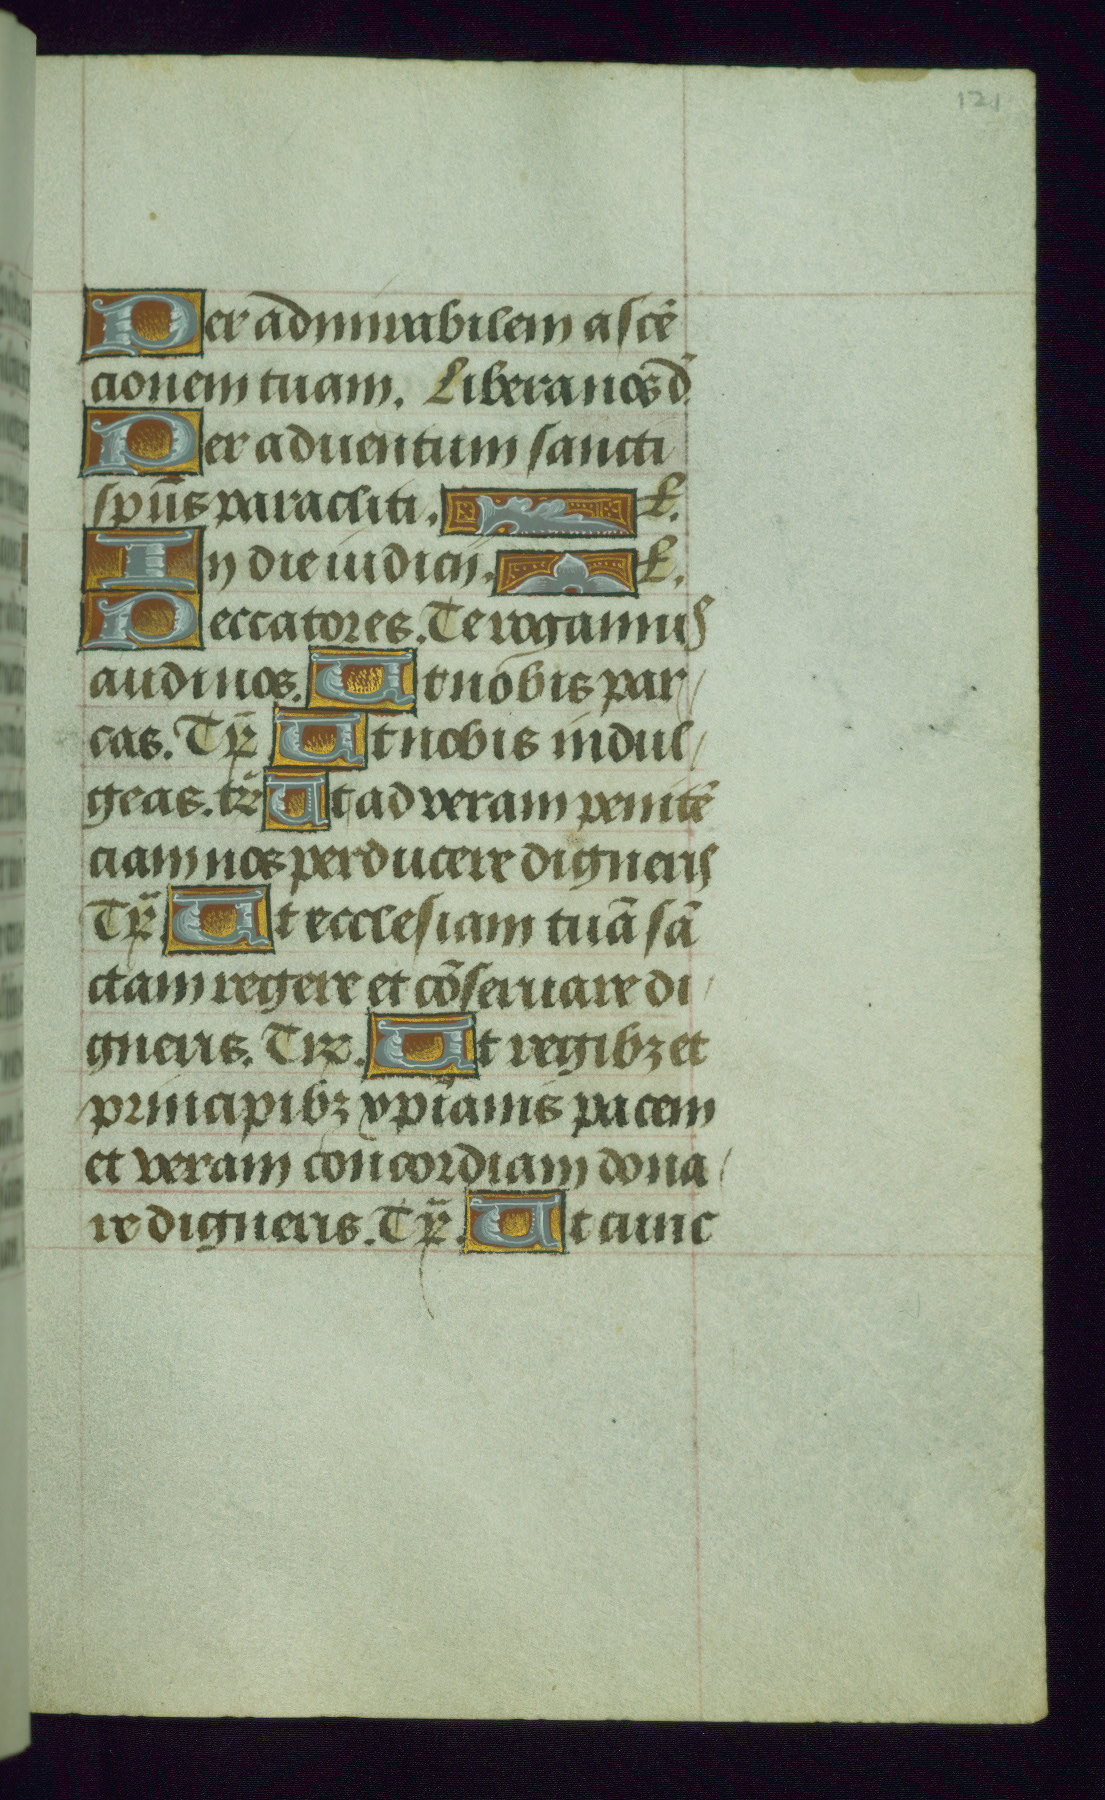 121
Per admirabilem ascē
cionem tuam. Libera nos d̄
Per aduentum sancti
sp̄us paracliti. L.
In die iudicij. L.
Peccatores. Te rogamus
audi nos. Ut nobis par/
cas. Tr̄ Ut nobis indul/
geas. tr̄ Ut ad veram penitē
ciam nos perducere digneris
Tr̄. Ut ecclesiam tuā sā
ctam regere et cōseruare di/
gneris. Tr. Ut regibꝫ et
principibꝫ xp̄ianis pacem
et veram concordiam dona/
re digneris. Tr̄. Ut cunc